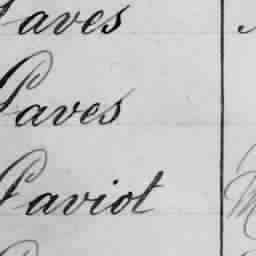 Paves
Paves
Paviot